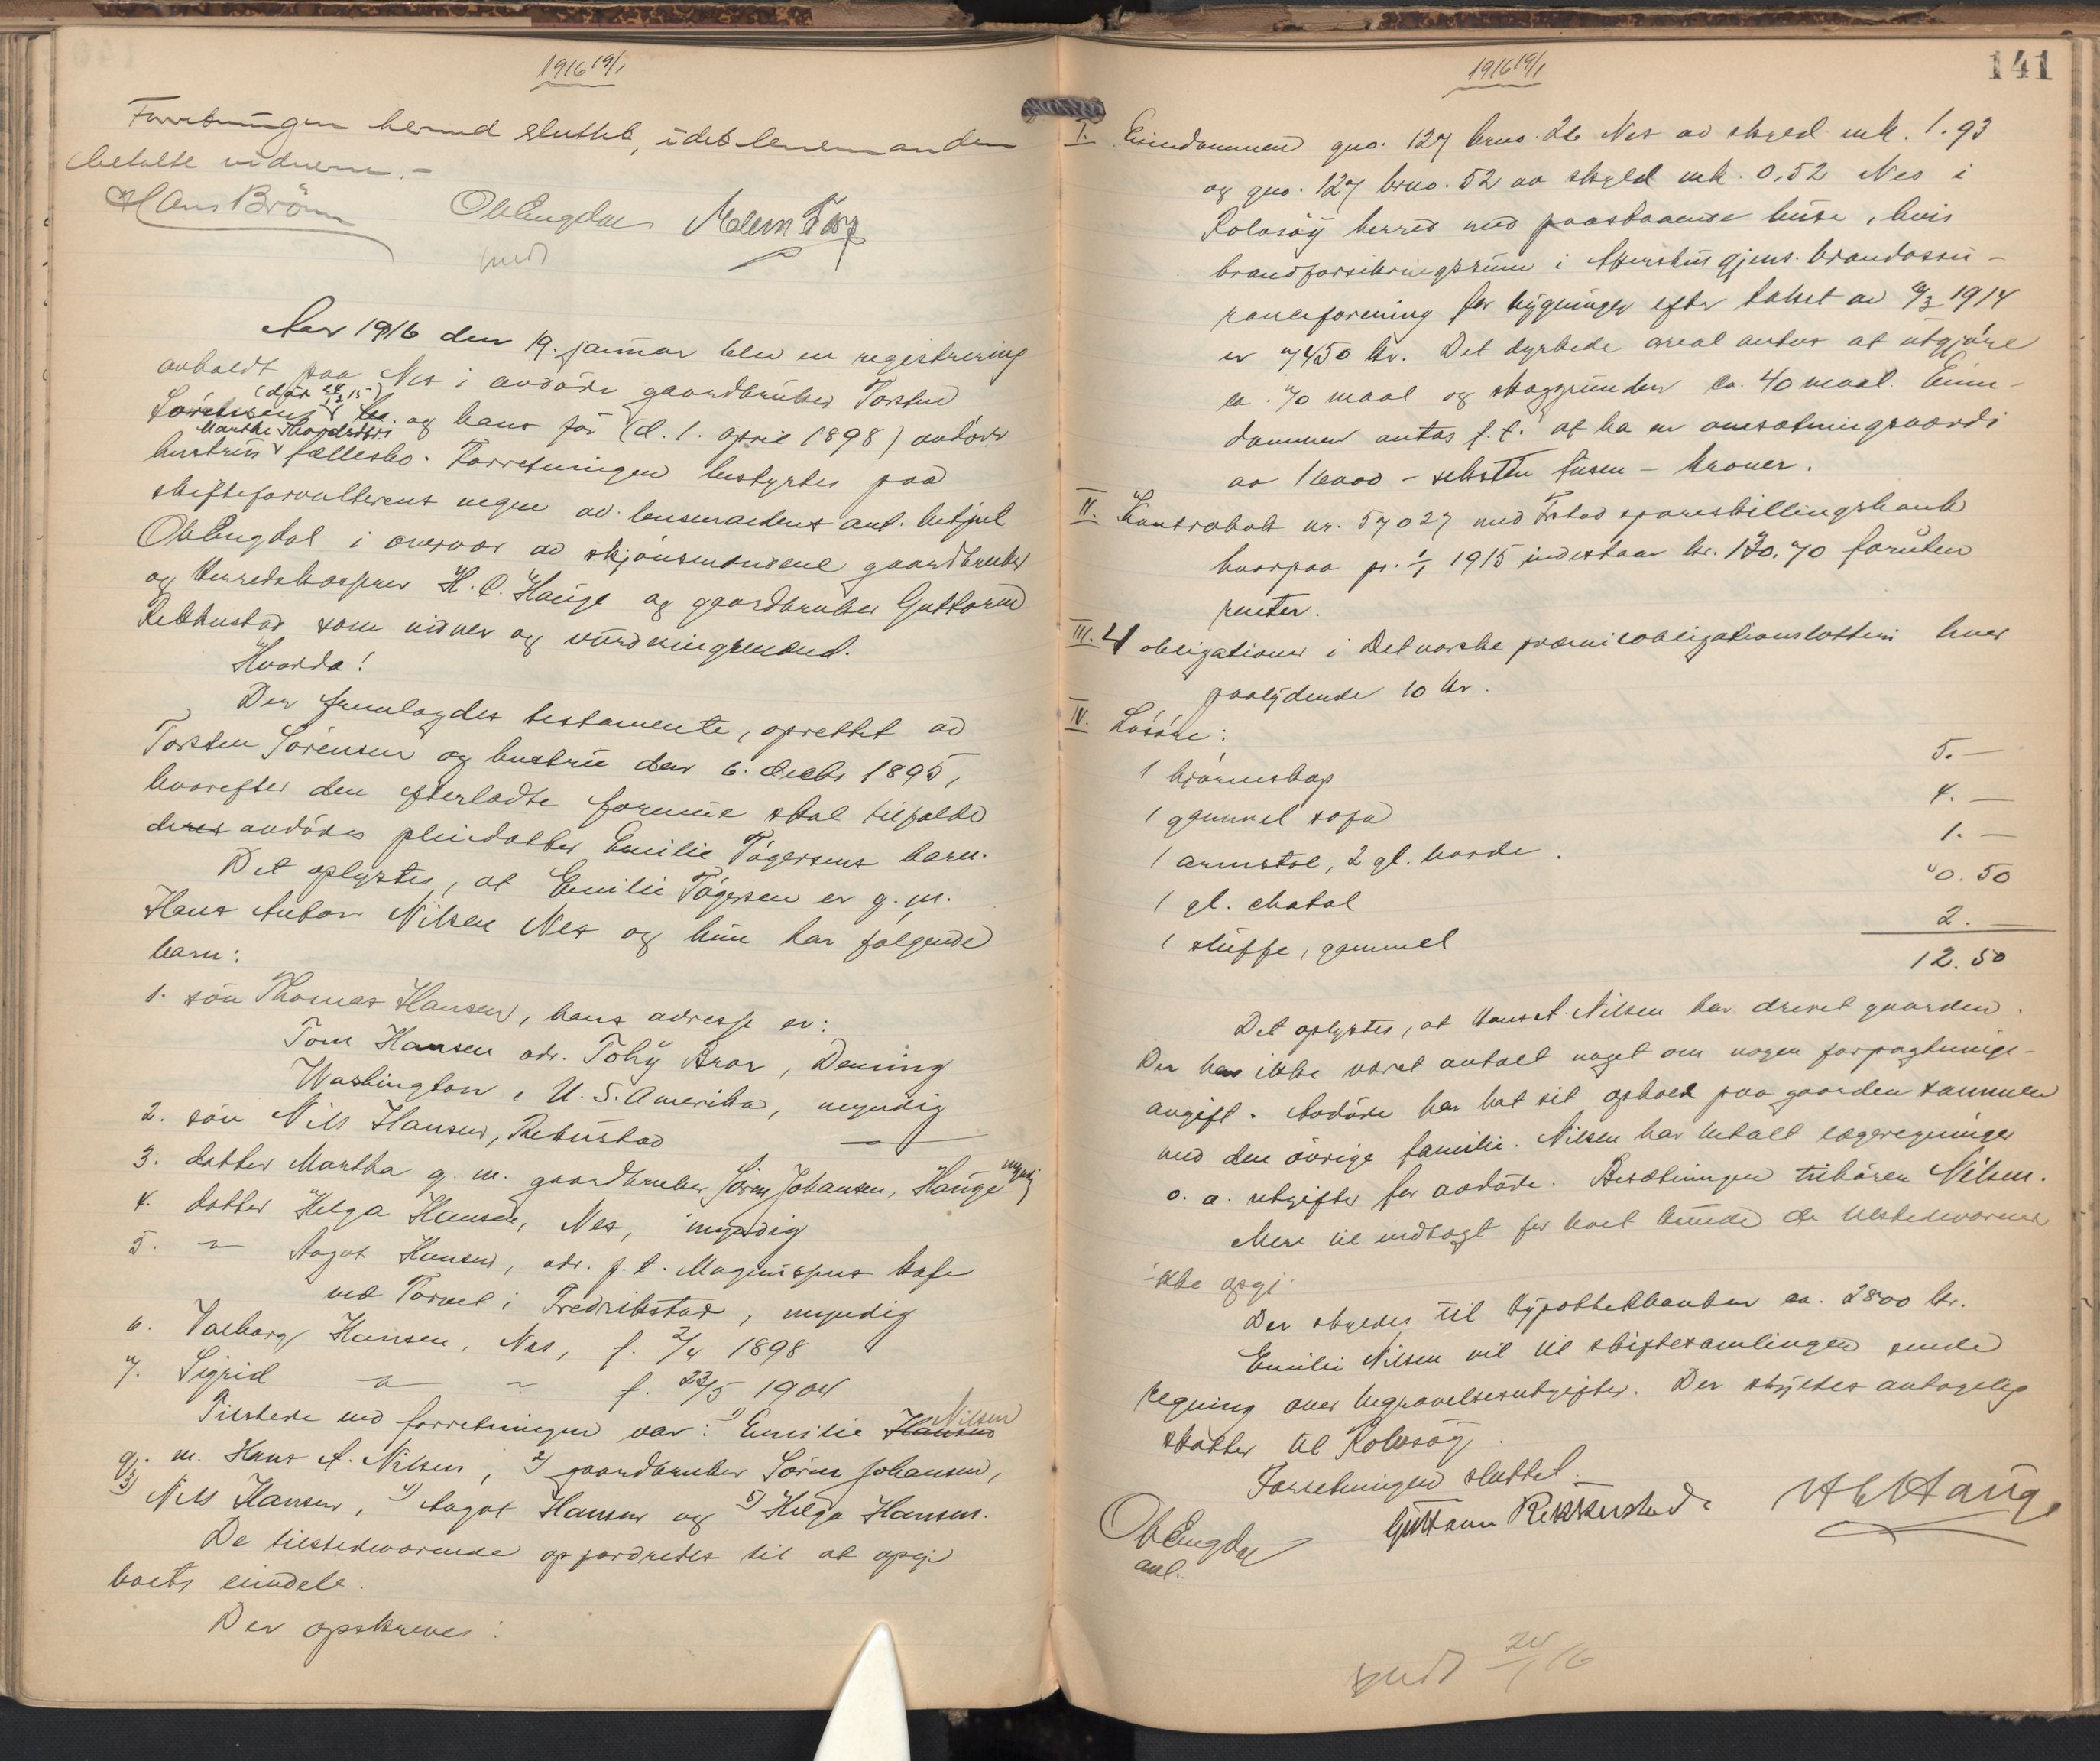 1916 19/1
Forretningen hermed sluttet, idet lensmanden
betalte vidnerne.-
Hans Brönn OlEngdal
sendt
Aar 1916 den 19. januar blev en registrering
avholdt paa Nes i avdöde gaardbruker Torsten
(död 24/12 15)
Sörensens og hans för (d. 1. april 1898) avdöde
Marthe Thordsdtr.
hustrus fællesbo. Forretningen bestyrtes paa
skifteforvalterens vegne av lensmandens aut. betjent
Ol Engdal i overvær av skjönsmændene gaardbruker
og herredskasserer H. C. Hauge og gaardbruker Guttorm
Rekkustad som vidner og vurderingsmænd.
Hvorda!
Der fremlagdes testamente, oprettet av
Torsten Sörensen og hustru den 6. decbr 1895,
hvorefter den efterladte formue skal tilfalde
deres avdödes pleiedatter Emilie Tögersens barn.
Det oplystes, at Emilie Tögersen er g. m.
Hans Anton Nilsen Nes og hun har följende
barn:
1. sön Thomas Hansen, hans adresse er:
Tom Hansen adr. Toby Bror, Deming
Washington, U. S. Amerika, myndig
2. sön Nils Hansen, Rekustad —"—
3. datter Martha g. m. gaardbruker Sören Johansen, Hauge myndig
4. datter Helga Hansen, Nes, myndig
5. " Aagot Hansen, adr. p. t. Magnussens kafe
ved Torvet i Fredrikstad, myndig
6. Valborg Hansen, Nes, f. 2/4 1898
7. Sigrid " " f. 23/5 1904
Tilstede ved forretningen var: 1) Emilie Hansen Nilsen
g. m. Hans A. Nilsen, 2) gaardbruker Sören Johansen,
3) Nils Hansen, 4) Aagot Hansen og 5) Helga Hansen.
De tilstedeværende opfordredes til at opgi
boets eiendele.
Der opskreves:
1916 19/1
141
I. Eiendommen gno. 127 brno. 26 Nes av skyld mk. 1.93
og gno. 127 brno. 52 av skyld mk. 0,52 Nes i
Rolvsöy herred med paastaaende huse, hvis
brandforsikringssum i Akershus gjens. brandassu-
ranceforening for bygninger efter takst av 9/3 1914
er 7450 kr. Det dyrkede areal antas at utgjöre
ca. 70 maal og skoggrunden ca. 40 maal. Eien-
dommen antas f. t. at ha en omsætningsværdi
av 16000 - seksten tusen - kroner.
II. Kontrabok nr. 57027 med Fstad spareskillingsbank
hvorpaa pr. 1/1 1915 indestaar kr. 130.70 foruten
renter.
III. 4 obligationer i Det norske præmieobligationslotteri hver
paalydende 10 kr.
IV. Lösöre:
1 hjörneskap 5.—
1 gammel sofa 4.—
1 armstol, 2 gl. borde. 1.—
1 gl. chatol "0.50
1 sluffe, gammel 2.—
12.50
Det oplystes, at Hans A. Nilsen har drevet gaarden.
Der har ikke været avtalt noget om nogen forpagtnings-
avgift. Avdöde har hat sit ophold paa gaarden sammen
med den övrige familie. Nilsen har betalt lægeregninger
o. a. utgifter for avdöde. Besætningen tilhörer Nilsen.
Mere til indtægt for boet kunde de tilstedeværende
ikke opgi.
Der skyldes til Hypothekbanken ca. 2800 kr.
Emilie Nilsen vil til skiftesamlingen sende
regning over begravelsesutgifter. Der skyldes antagelig
skatter til Rolvsöy.
Forretningen sluttet.
OlEngdal Guttorm Rekkustad H C Hauge
aut.
sendt 24/1 16